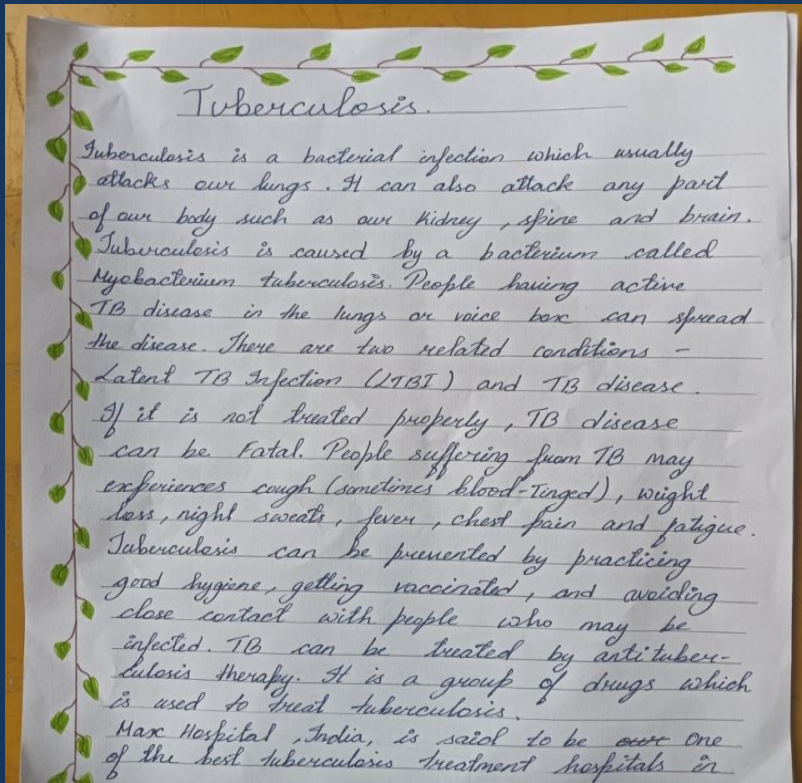 Tuberculosis.
Tuberculosis is a bacterial infection which usually
attacks our lungs. It can also attack any part
of our body such as our kidney, spine and brain.
Tuberculosis is caused by a bacterium called
Myobacterium tuberculosis. People having active
TB disease in the lungs or voice box can spread
the disease. There are two related conditions -
Latent TB Infection (LTBI) and TB disease.
If it is not treated properly, TB disease
can be Fatal. People suffering from TB may
experiences cough (sometimes blood-Tinged), weight
loss, night sweats, fever, chest pain and fatigue.
Tuberculosis can be prevented by practicing
good hygiene, getting vaccinated, and avoiding
close contact with people who may be
infected. TB can be treated by antituber-
culosis therapy. It is a group of drugs which
is used to treat tuberculosis.
Max Hospital, India, is said to be one
of the best tuberculosis treatment hospitals in